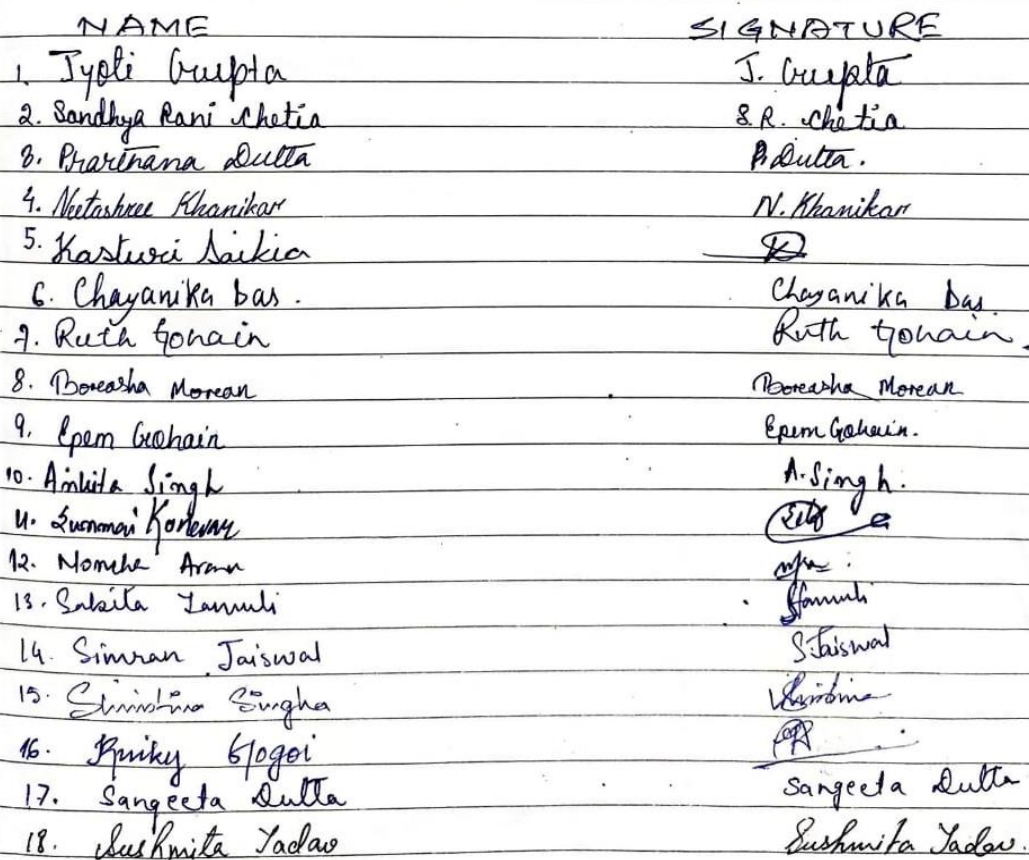 NAME SIGNATURE
1. Jyoti Gupta J. Gupta
2. Sandhya Rani Chetia S.R. Chetia
3. Prarthana Dutta P. Dutta.
4. Neetashree Khanikar N. Khanikar
5. Kasturi Saikia
6. Chayanika Das. Chayanika Das
7. Ruth Gohain Ruth Gohain.
8. Boreasha Morean Boreasha Morean
9. Epem Gohain Epem Gohain.
10. Ankita Singh A. Singh.
11. Konwar
12. Nomche
13. Sabita Jamuli
14. Simran Jaiswal S. Jaiswal
15. Singha
16. Gogoi
17. Sangeeta Dutta Sangeeta Dutta
18. Sushmita Yadav Sushmita Yadav.